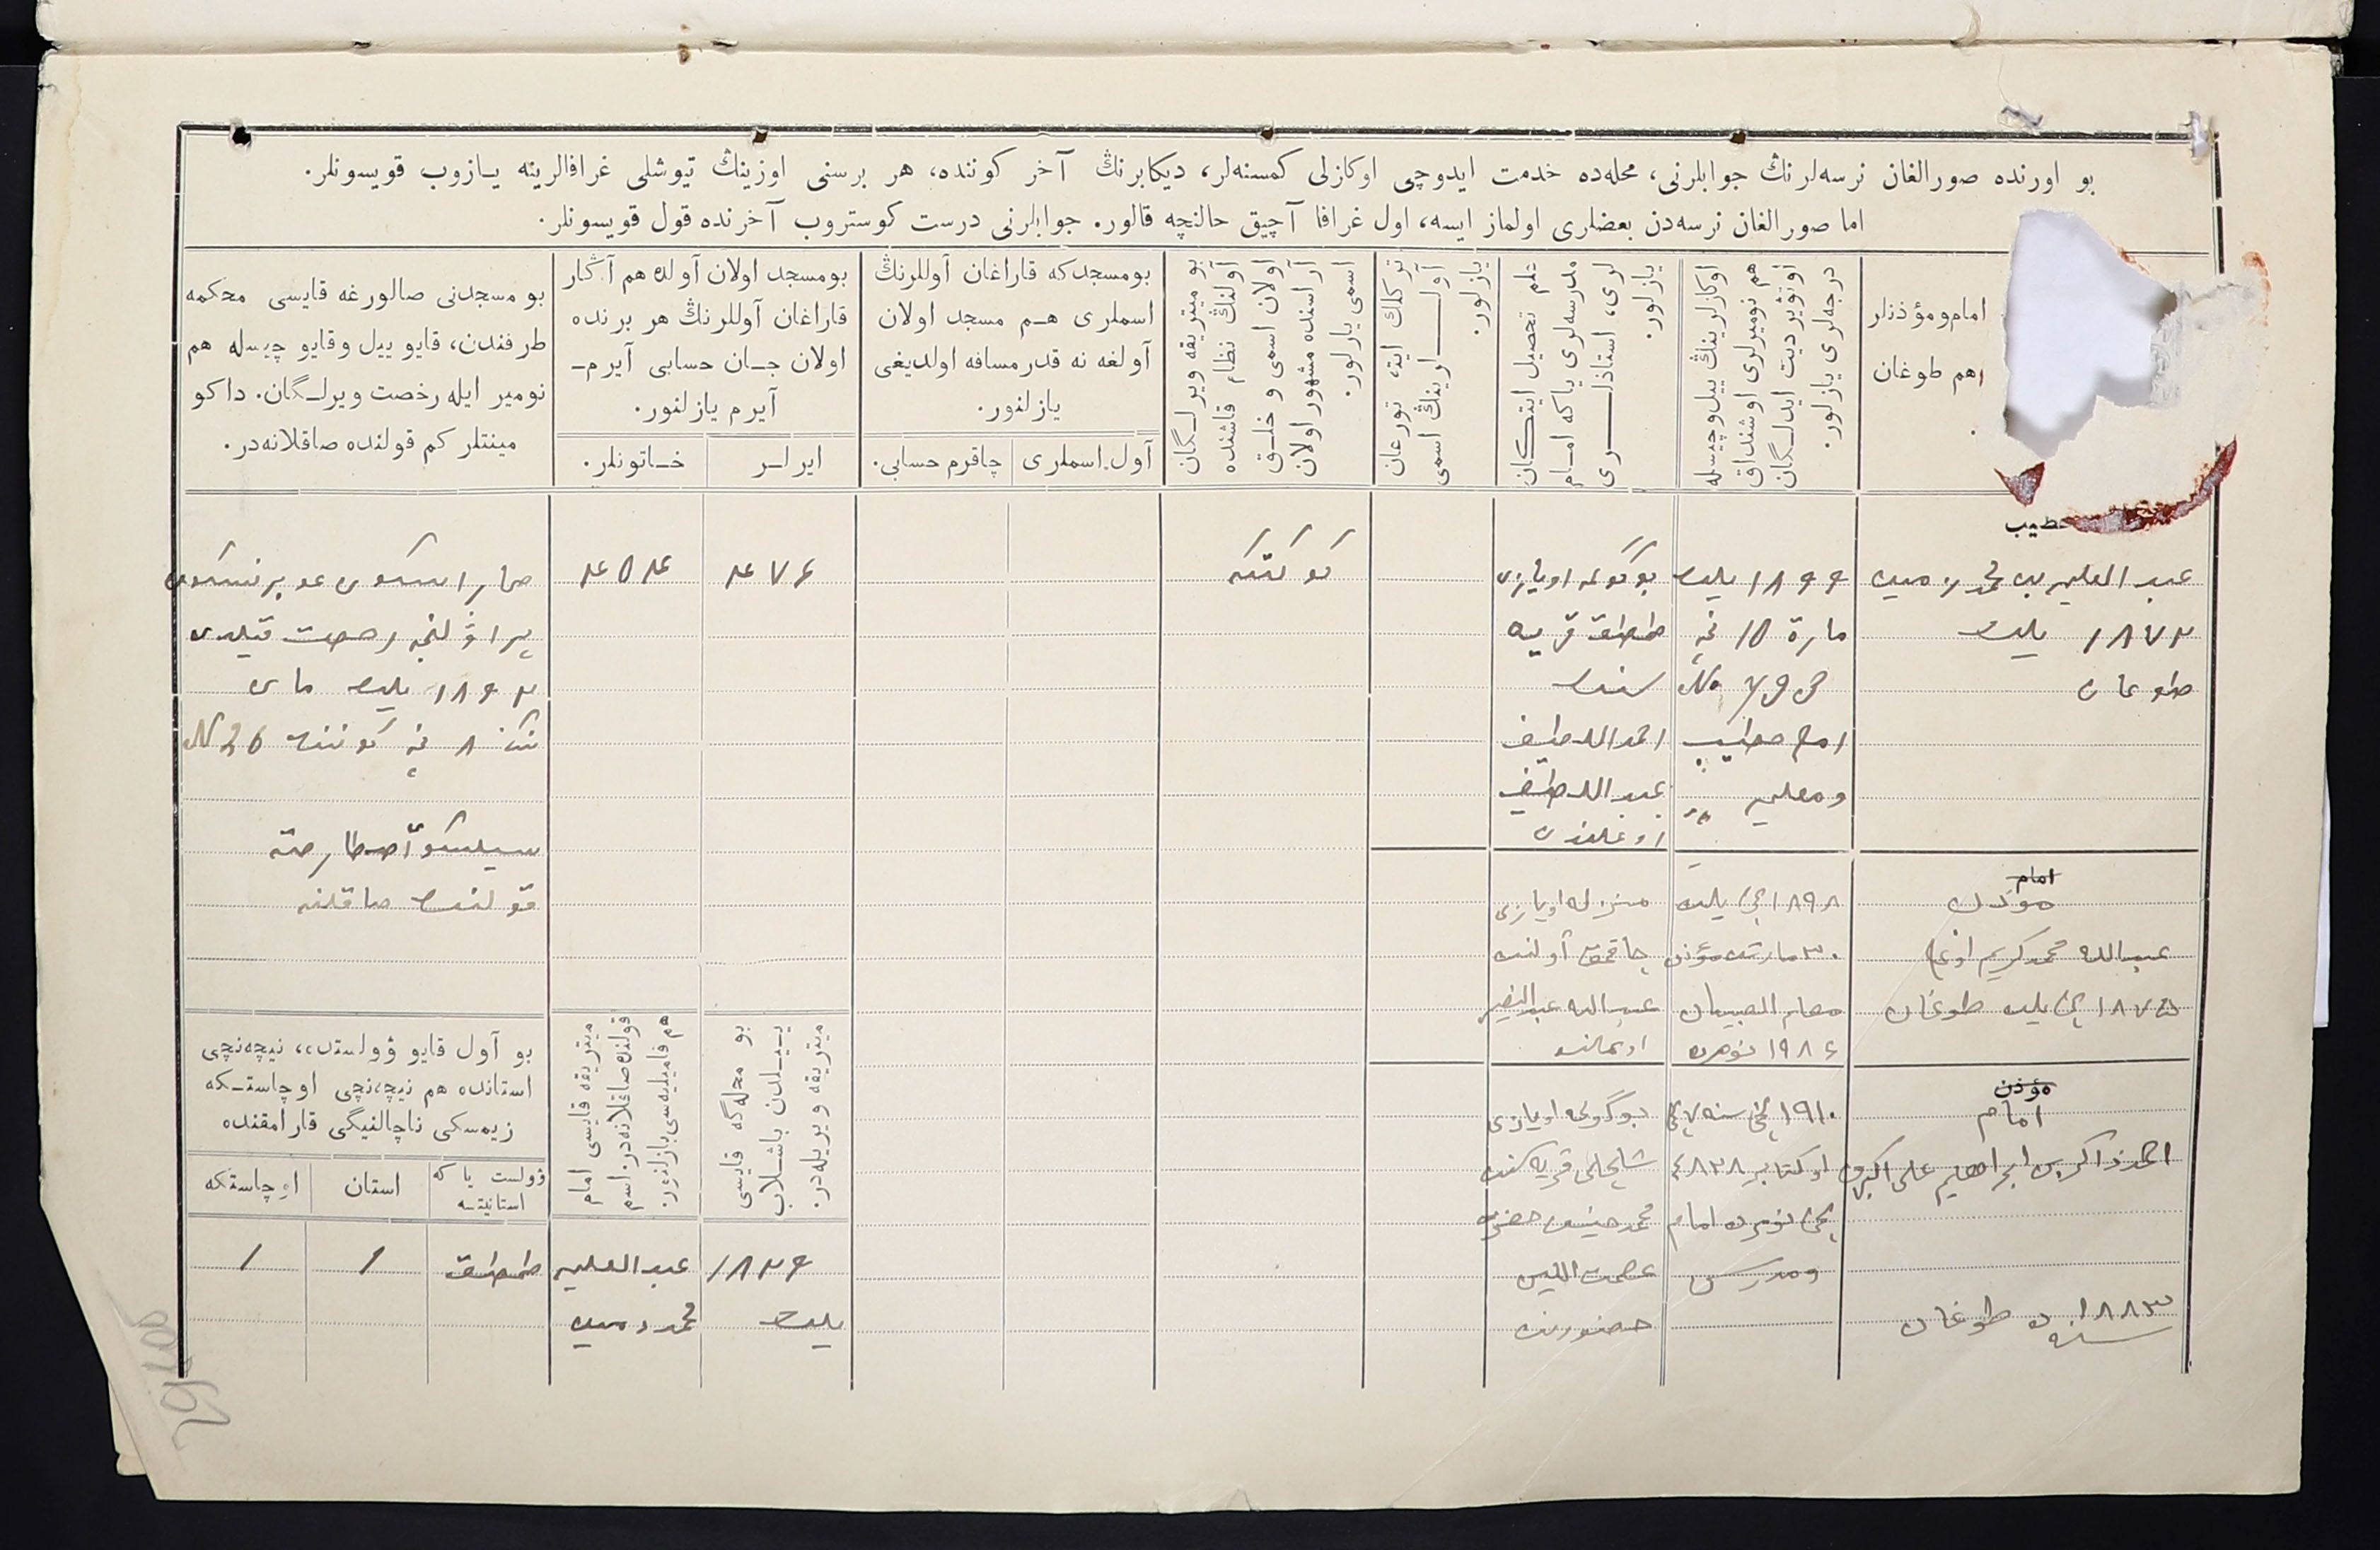 بو اورنده صورالغان نرسه‌لرنڭ جوابلرنی، محله‌ده خدمت ایدوچی اوکازلی کمسنه‌لر، دیکابرنڭ آخر کوننده، هر برسنی اوزینڭ تیوشلی غرافالرینه یازوب قویسونلر.
اما صورالغان نرسه‌دن بعضلری اولماز ایسه، اول غرافا آچیق حالنچه قالور. جوابلرنی درست کوستروب آخرنده قول قویسونلر.
امام و مؤذنلر
هم طوغان
اوکازلرینڭ ییل و چیسله
هم نومیرلری اوشنداق
اوتوئیردیت ایدلگان
درجه‌لری یازلور.
علم تحصیل ایتکان
مدرسه‌لری یاکه امام
لری، استاذلری
یازلور.
ترکلك ایته تورغان
آوللرینڭ اسمی
یازلور.
بو میتریقه ویرلگان
آولنڭ نظام قاشنده
اولان اسمی و خلق
آراسنده مشهور اولان
اسمی یازلور.
بو مسجدکه قاراغان آوللرنڭ
اسملری هم مسجد اولان
آولغه نه قدر مسافه اولدیغی
یازلنور.
آول اسملری
چاقرم حسابی.
بو مسجد اولان آولده هم آڭار
قاراغان آوللرنڭ هر برنده
اولان جان حسابی آیرم-
آیرم یازلنور.
ایرلر
خاتونلر.
بو مسجدنی صالورغه قایسی محکمه
طرفندن، قایو ییل و قایو چیسله هم
نومیر ایله رخصت ویرلگان. داکو
مینتلر کم قولنده صاقلانه‌در.
خطیب
عبد العلیم بن محمد
۱۸۷۲ یلده
طوغان
۱۸۹۹ یلده
مارة 15 نچی
№
امام خطیب
و معلم
بوگولمه اویازی
طمطق قریه
سنده
احمد اللطیف
عبد اللطیف
اوغلندن
۴۷۶
۴۵۴
رخصت قیلدی
۱۸۹۲ یلده مای
نڭ ۸ نچی کوننده № 26
قولنده صاقلنه
امام
مؤذن
عبدالله محمدکریم اوغلی
۱۸۷۵ نچی یلده طوغان
۱۸۹۸ نچی یلده
۳۰ مارتده مؤذن
معلم الصبیان
۱۹۸۶ نومرده
منزله اویازی
چاقمق آولنده
عبدالله عبدالنصیر
اوغلنده
مؤذن
امام
احمد ذاکر بن ابراهیم علی اکبروف
۱۸۸۳
سنه ده طوغان
۱۹۱۰ نچی سنه ۷ نچی
اوکتابر ۴۸۳۸
نچی نومرده امام
و مدرس
بوگولمه اویازی
شلچلی قریه سنده
محمد حضرت
عصمت الدین
حضورنده
بو محله‌گه قایسی
ییلدن باشلاب
میتریقه ویریله‌در.
میتریقه قایسی امام
قولنده صاقلانه‌در: اسم
هم فامیلیه‌سی یازلنور.
بو آول قایو ۇولستده، نیچه‌نچی
استانده هم نیچه‌نچی اوچاستکه
زیمسکی ناچالنیگی قارامقنده
ۇولست یاکه
استانیتسه
استان
اوچاستکه
۱۸۲۹
یلده
عبد العلیم
محمد
طمطق
۱
۱